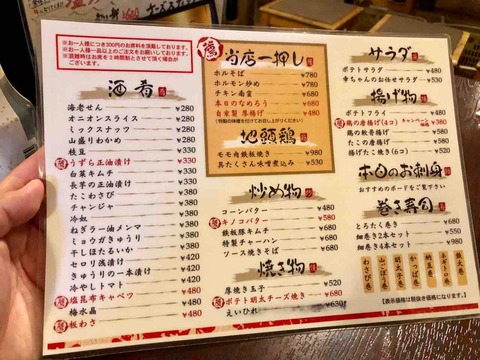 ※お一人様につき300円のお席料を頂戴しております。
※お一人様一品以上のご注文をお願いしております。
※混雑時はお席を2時間制とさせて頂く場合が
ございます。
酒肴
海老せん ￥280
オニオンスライス ￥280
ミックスナッツ ￥280
山盛りわかめ ￥280
枝豆 ￥280
うずら正油漬け ￥330
白菜キムチ ￥380
長芋の正油漬け ￥380
たこわさび ￥380
チャンジャ ￥380
冷奴 ￥380
ねぎラー油メンマ ￥380
ミョウガきゅうり ￥380
干しほたるいか ￥380
セロリ浅漬け ￥380
きゅうりの一本漬け ￥420
冷やしトマト ￥480
塩昆布キャベツ ￥480
梅水晶 ￥480
板わさ ￥480
当店一押し
ホルそば ￥780
ホルモン炒め ￥780
チキン南蛮 ￥680
本日のなめろう ￥680
自家製 厚揚げ ￥480
地頭鶏
モモ肉鉄板焼き ￥980
具たくさん味噌煮込み ￥530
炒め物
コーンバター ￥480
キノコバター ￥580
鉄板豚キムチ ￥680
特製チャーハン ￥680
ソース焼きそば ￥680
焼き物
厚焼き玉子 ￥520
ポテト明太チーズ焼き ￥680
えいひれ ￥630
サラダ
ポテトサラダ ￥480
幸ちゃんのお任せサラダ ￥680
揚げ物
ポテトフライ ￥480
鶏の唐揚げ(4コ) キャンペーン価格 ￥380
鶏の軟骨唐揚げ ￥480
たこの唐揚げ ￥480
揚げたこ焼き(5コ) ￥480
本日のお刺身
おすすめのボードをご覧下さい
巻き寿司
とろたく巻き ￥680
細巻き2本セット ￥550
細巻き4本セット ￥980
鉄火巻
ネギトロ巻
納豆巻
かっぱ巻
明太子巻
梅しそ巻
わさび巻
(表示価格は税抜き価格になります。)